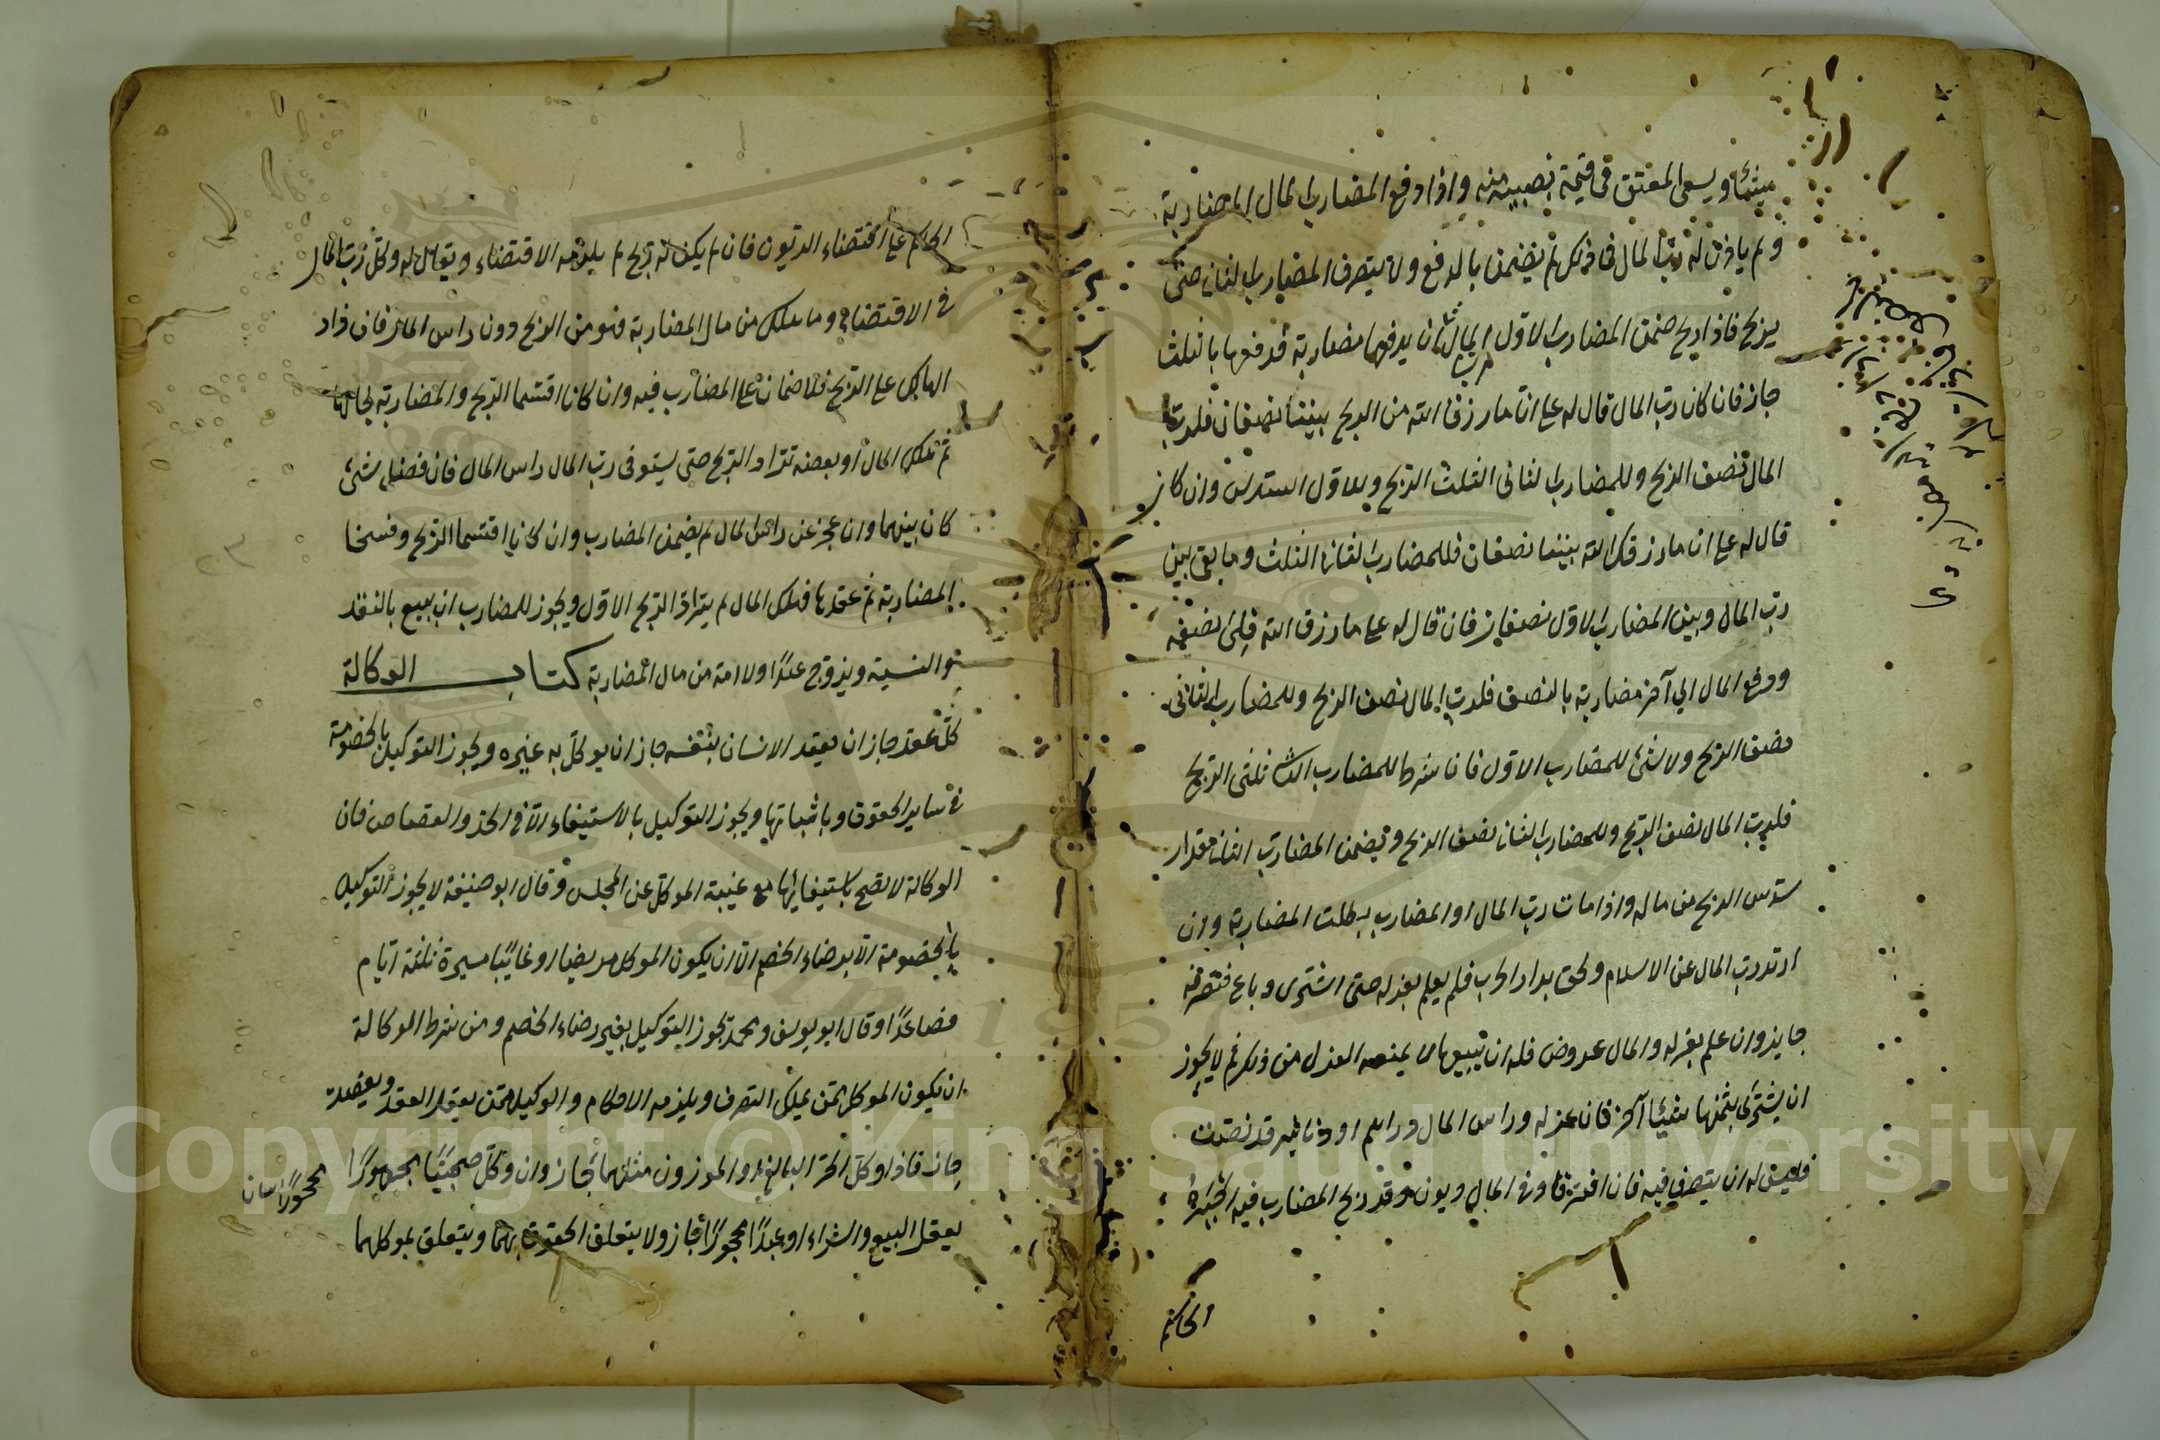 شيئا ويسعى المعتق في قيمة نصيبه منه واذا دفع المضارب المال المضاربة
ولم ياذن له رب المال في ذلك لم يضمن بالدفع ولا يتصرف المضارب الثاني حتى
يربح فاذا ربح ضمن المضارب الاول المال فان يدفعها مضاربة فدفعها بالثلث
جاز فان كان رب المال قال له على ان ما رزق الله من الربح بيننا نصفان فلرب
المال نصف الربح وللمضارب الثاني الثلث الربح وللاول السدس وان كان
قال له على ان ما رزقك الله بيننا نصفان فللمضارب الثاني الثلث وما بقي بين
رب المال وبين المضارب الاول نصفان فان قال له على ما رزق الله فلي نصفه
ودفع المال الي آخر مضاربة بالنصف فلرب المال نصف الربح وللمضارب الثاني
نصف الربح ولا شئ للمضارب الاول فان شرط للمضارب الثا ثلثي الربح
فلرب المال نصف الربح وللمضارب الثاني نصف الربح ويضمن المضارب الثاني مقدار
سدس الربح من ماله واذا مات رب المال او المضارب بطلت المضاربة وان
ارتد رب المال عن الاسلام ولحق بدار الحرب فلم يعلم بعزله حتى اشترى وباع فتصرفه
جايز وان علم بعزله والمال عروض فله ان يبيعها ولا يمنعه العزل من ذلك ثم لا يجوز
ان يشتري بثمنها شيئا آخر فان عزله وراس المال دراهم او دنانير قد نضت
فليس له ان يتصرف فيه فان افترقا وفي المال ديون وقد ربح المضارب فيه اجبره
الحاكم
الحاكم على اقتضاء الديون فان لم يكن له ربح لم يلزمه الاقتضاء ويقال له وكل رب المال
في الاقتضاء وما هلك من مال المضاربة فهو من الربح دون راس المال فان زاد
الهالك على الربح فلا ضمان على المضارب فيه وان كان اقتسما الربح والمضاربة بحالها
ثم هلك المال او بعضه تراد الربح حتى يستوفي رب المال راس المال فان فضل شئ
كان بينهما وان عجز عن راس المال لم يضمن المضارب وان كانا اقتسما الربح وفسخا
المضاربة ثم عقدها فهلك المال لم يترادا الربح الاول ويجوز للمضارب ان يبيع بالنقد
والنسية ويزوج عبدا ولا امة من مال المضاربة كتاب الوكالة
كل عقد جاز ان يعقد الانسان بنفسه جاز ان يوكل به غيره ويجوز التوكيل بالخصومة
في ساير الحقوق وباثباتها ويجوز التوكيل بالاستيفاء الا في الحد والقصاص فان
الوكالة لا تصح باستيفائها مع غيبة الموكل عن المجلس وقال ابو حنيفة لا يجوز التوكيل
بالخصومة الا برضاء الخصم الا ان يكون الموكل مريضا او غايبا مسيرة ثلثة ايام
فصاعدا وقال ابو يوسف ومحمد يجوز التوكيل بغير رضاء الخصم ومن شرط الوكالة
ان يكون الموكل ممن يملك التصرف ويلزمه الاحكام والوكيل ممن يعقل العقد ويقصده
جاز فاذا وكل الحر البالغ او الماذون مثلهما جاز وان وكل صبيا محجورا
محجورا
يعقل البيع والشراء او عبدا محجورا جاز ولا يتعلق الحقوق بهما ويتعلق بموكلهما
Copyright © King Saud University